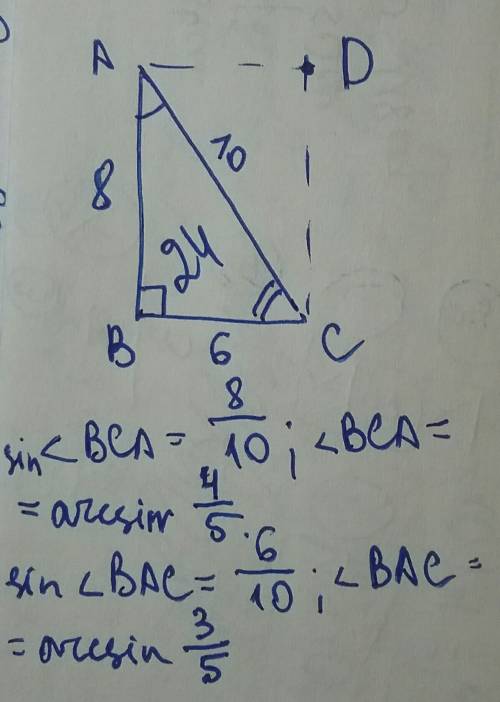 A D
8 10
24
B 6 C
sin∠BCA = 8/10; ∠BCA =
= arcsin 4/5.
sin∠BAC = 6/10; ∠BAC =
= arcsin 3/5